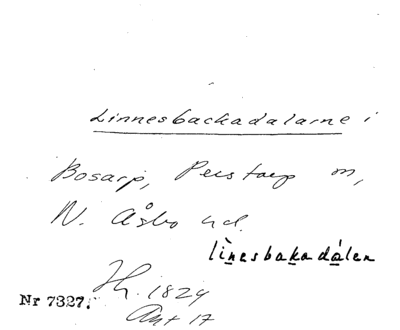 Linnesbackadalarne i
Bosarp, Perstorp sn,
N. Åsbo hd.
lìnesbakadálen
Th. 1829
Nr 7327. Ant 17